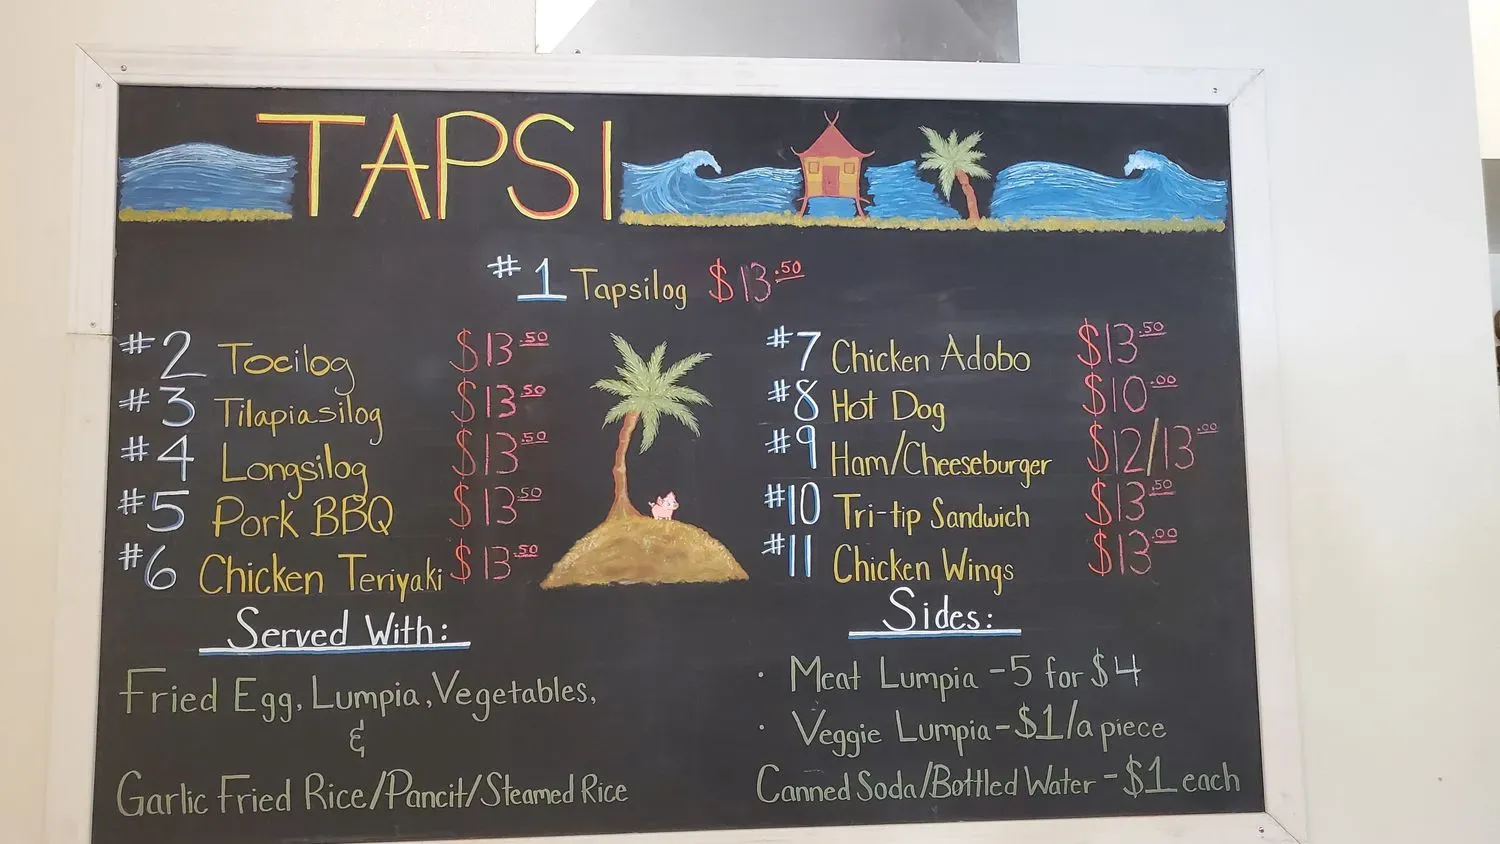 TAPSI
#1 Tapsilog $13.50
#2 Tocilog $13.50
#3 Tilapiasilog $13.50
#4 Longsilog $13.50
#5 Pork BBQ $13.50
#6 Chicken Teriyaki $13.50
Served With:
Fried Egg, Lumpia, Vegetables,
&
Garlic Fried Rice/Pancit/Steamed Rice
#7 Chicken Adobo $13.50
#8 Hot Dog $10.00
#9 Ham/Cheeseburger $12/13.00
#10 Tri-tip Sandwich $13.50
#11 Chicken Wings $13.00
Sides:
· Meat Lumpia - 5 for $4
· Veggie Lumpia - $1/a piece
Canned Soda/Bottled Water - $1 each